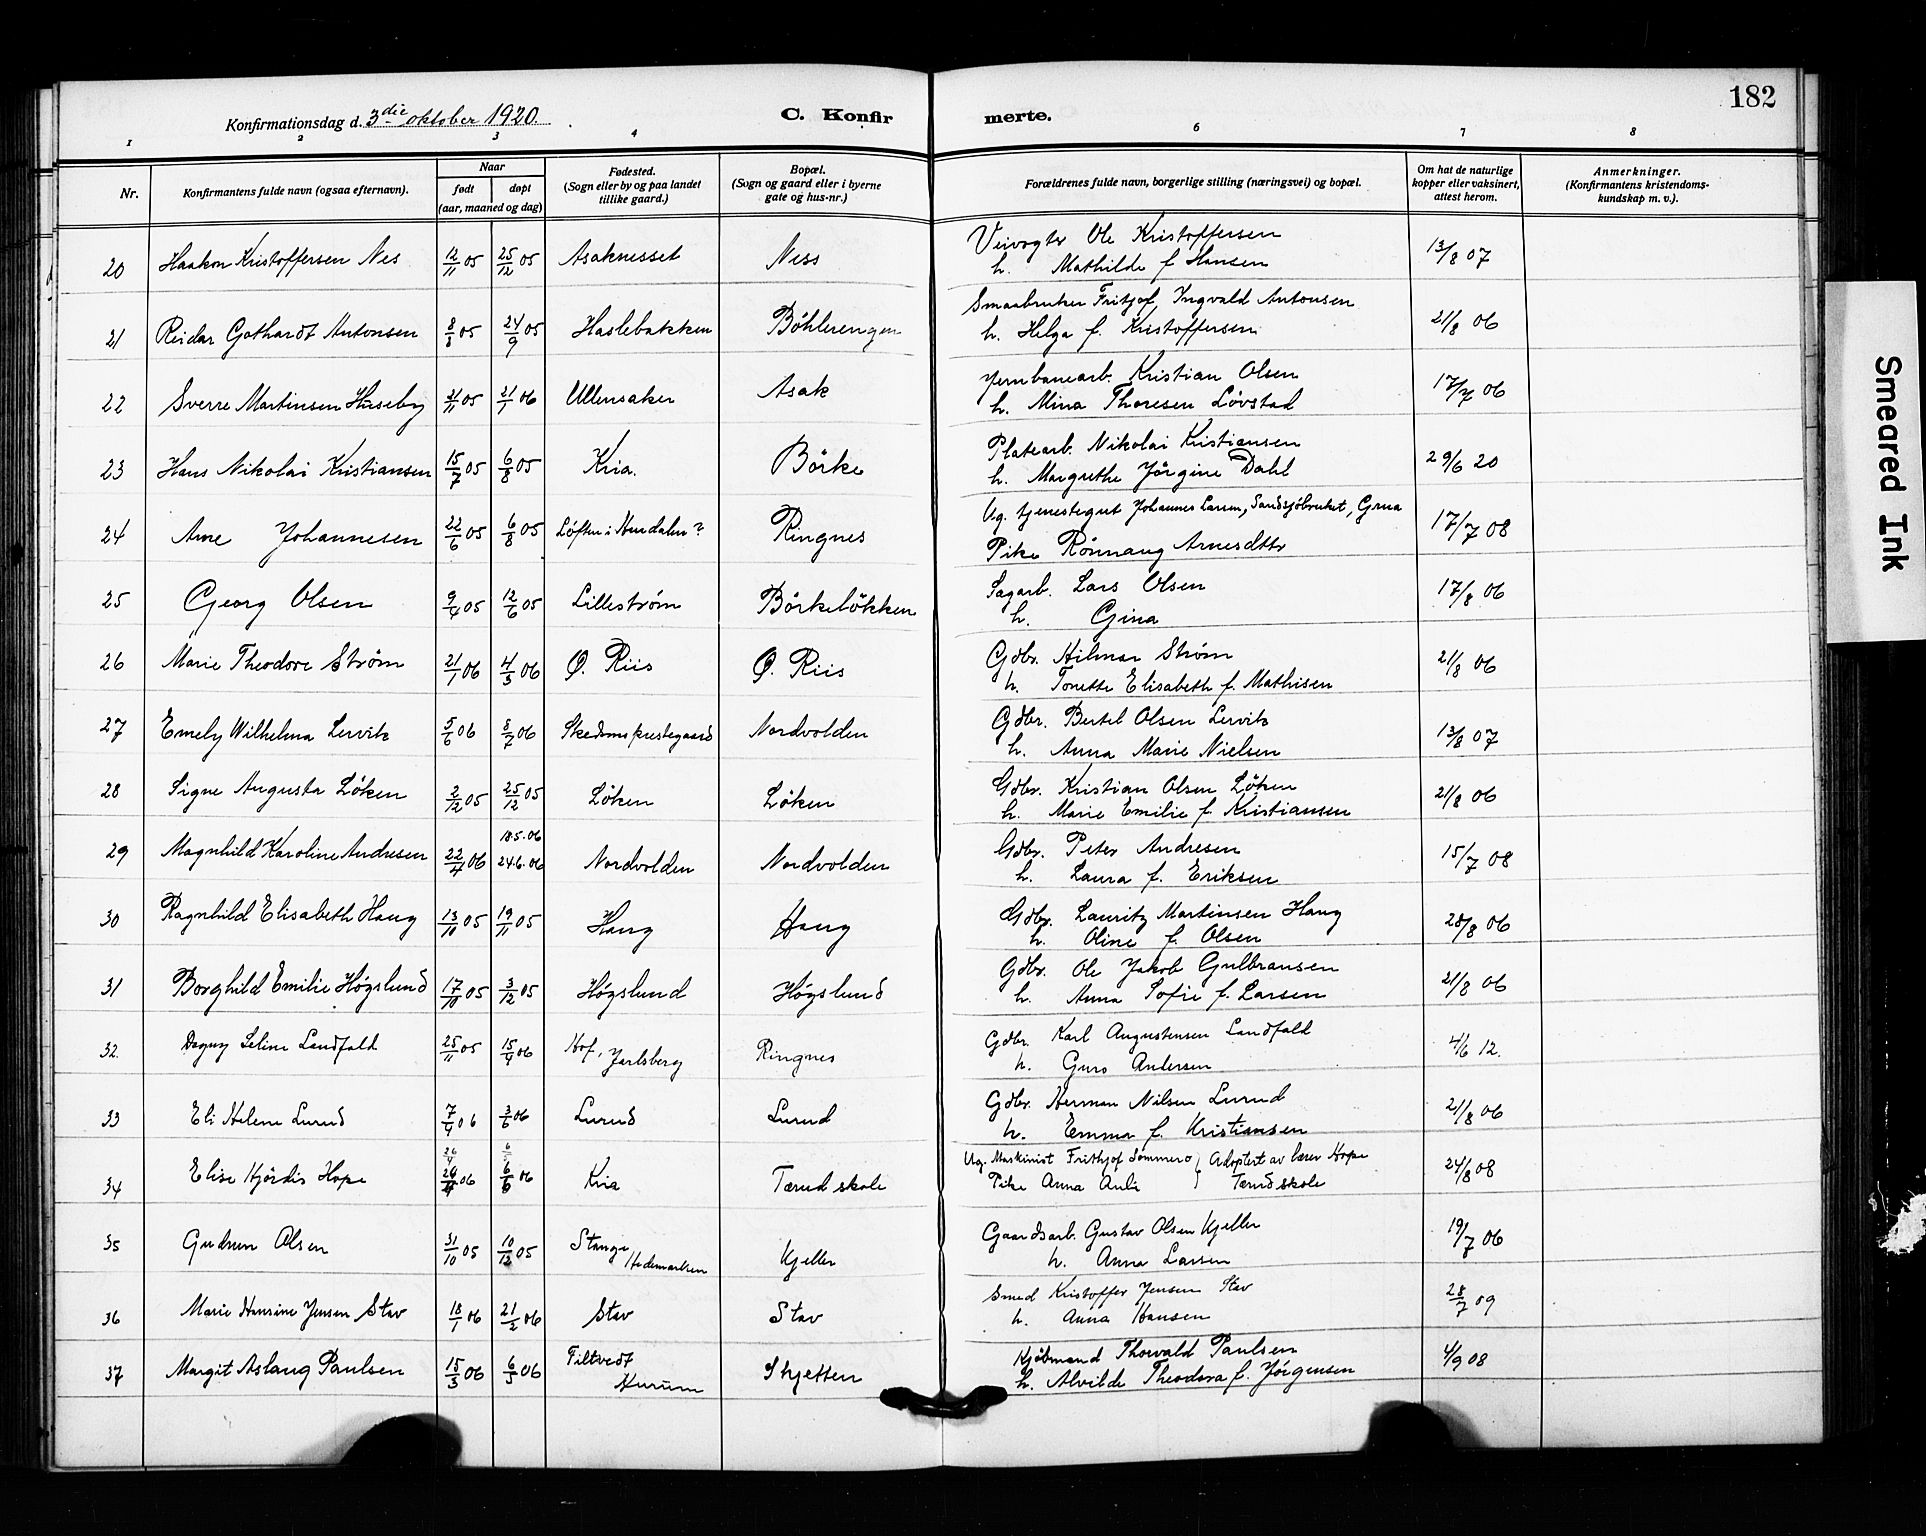 182
Konfirmationsdag d. 3die oktober 1920.
C. Konfirmerte.
1 2 3 4 6 7 8
Nr.
Konfirmantens fulde navn (ogsaa efternavn).
Naar
født døpt
(aar, maaned og dag)
Fødested.
(Sogn eller by og paa landet
tillike gaard.)
Bopæl.
(Sogn og gaard eller i byerne
gate og hus-nr.)
Forældrenes fulde navn, borgerlige stilling (næringsvei) og bopæl.
Om hat de naturlige
kopper eller vaksinert,
attest herom.
Anmerkninger.
(Konfirmantens kristendoms-
kundskap m. v.).
20 Haakon Kristoffersen Nes 12/11 05 25/12 05 Asaknesset Ness Veivogter Ole Kristoffersen 13/8 07
h. Mathilde f. Hansen
21 Reidar Gothardt Antonsen 8/8 05 24/9 05 Haslebakken Böhlerengen Smaabruker Fritjof Ingvald Antonsen 21/8 06
h. Helga f. Kristoffersen
22 Sverre Martinsen Huseby 21/11 05 21/1 06 Ullensaker Asak Jernbanearb. Kristian Olsen 17/7 06
h. Mina Thoresen Lövstad
23 Hans Nikolai Kristiansen 15/7 05 6/8 05 Kria. Börke Platearb. Nikolai Kristiansen 29/6 20
h. Margrethe Jörgine Dahl
24 Arne Johannesen 22/6 05 6/8 05 Løften i Hurdalen? Ringnes Ug. tjenestegut Johannes Larsen, Sandsjöbruket, Grua 17/7 08
Pike Rönnaug Arnesdttr
25 Georg Olsen 9/4 05 12/6 05 Lilleström Börkelökken Sagarb. Lars Olsen 17/8 06
h. Gina
26 Marie Theodore Ström 21/1 06 4/3 06 Ø. Riis Ø. Riis Gdbr. Hilmar Strøm 21/8 06
h. Tonette Elisabeth f. Mathisen
27 Emely Wilhelma Lervik 5/6 06 8/7 06 Skedsmo prestegaard Nordvolden Gdbr. Bertel Olsen Lervik 13/8 07
h. Anna Marie Nielsen
28 Signe Augusta Löken 2/12 05 25/12 05 Löken Löken Gdbr. Kristian Olsen Löken 21/8 06
h. Marie Emilie f. Kristiansen
29 Magnhild Karoline Andresen 22/4 06 18.5.06 24.6.06 Nordvolden Nordvolden Gdbr. Peter Andresen 15/7 08
h. Laura f. Eriksen
30 Ragnhild Elisabeth Haug 13/10 05 19/11 05 Haug Haug Gdbr. Lauritz Martinsen Haug 28/8 06
h. Oline f. Olsen
31 Borghild Emilie Högslund 17/10 05 3/12 05 Högslund Högslund Gdbr. Ole Jakob Gulbransen 21/8 06
h. Anna Sofie f. Larsen
32. Dagny Seline Landfald 25/11 05 15/4 06 Hof, Jarlsberg Ringnes Gdbr. Karl Augustensen Landfald 4/6 12.
h. Guro Andersen
33 Eli Helene Lurud 7/4 06 3/6 06 Lurud Lurud Gdbr. Herman Nilsen Lurud 21/8 06
h. Emma f. Kristiansen
34 Elise Hjördis Hope 26/4 06 6/6 06 Kria Tærud skole Ug. Maskinist Frithjof Sommero } Adoptert av lærer Hope 24/8 08
Pike Anna Auli } Tærud skole
35 Gudrun Olsen 31/10 05 10/12 05 Stange Hedemarken Kjeller Gaardsarb. Gustav Olsen Kjeller 19/7 06
h. Anna Larsen
36 Marie Hansine Jensen Stav 18/1 06 21/2 06 Stav Stav Smed Kristoffer Jensen Stav 28/7 09
h. Anna Hansen
37 Margit Aslaug Paulsen 15/3 06 6/5 06 Filtvedt Hurum Skjetten Kjöbmand Thorvald Paulsen 4/9 08
h. Alvilde Theodora f. Jörgensen
Smeared Ink